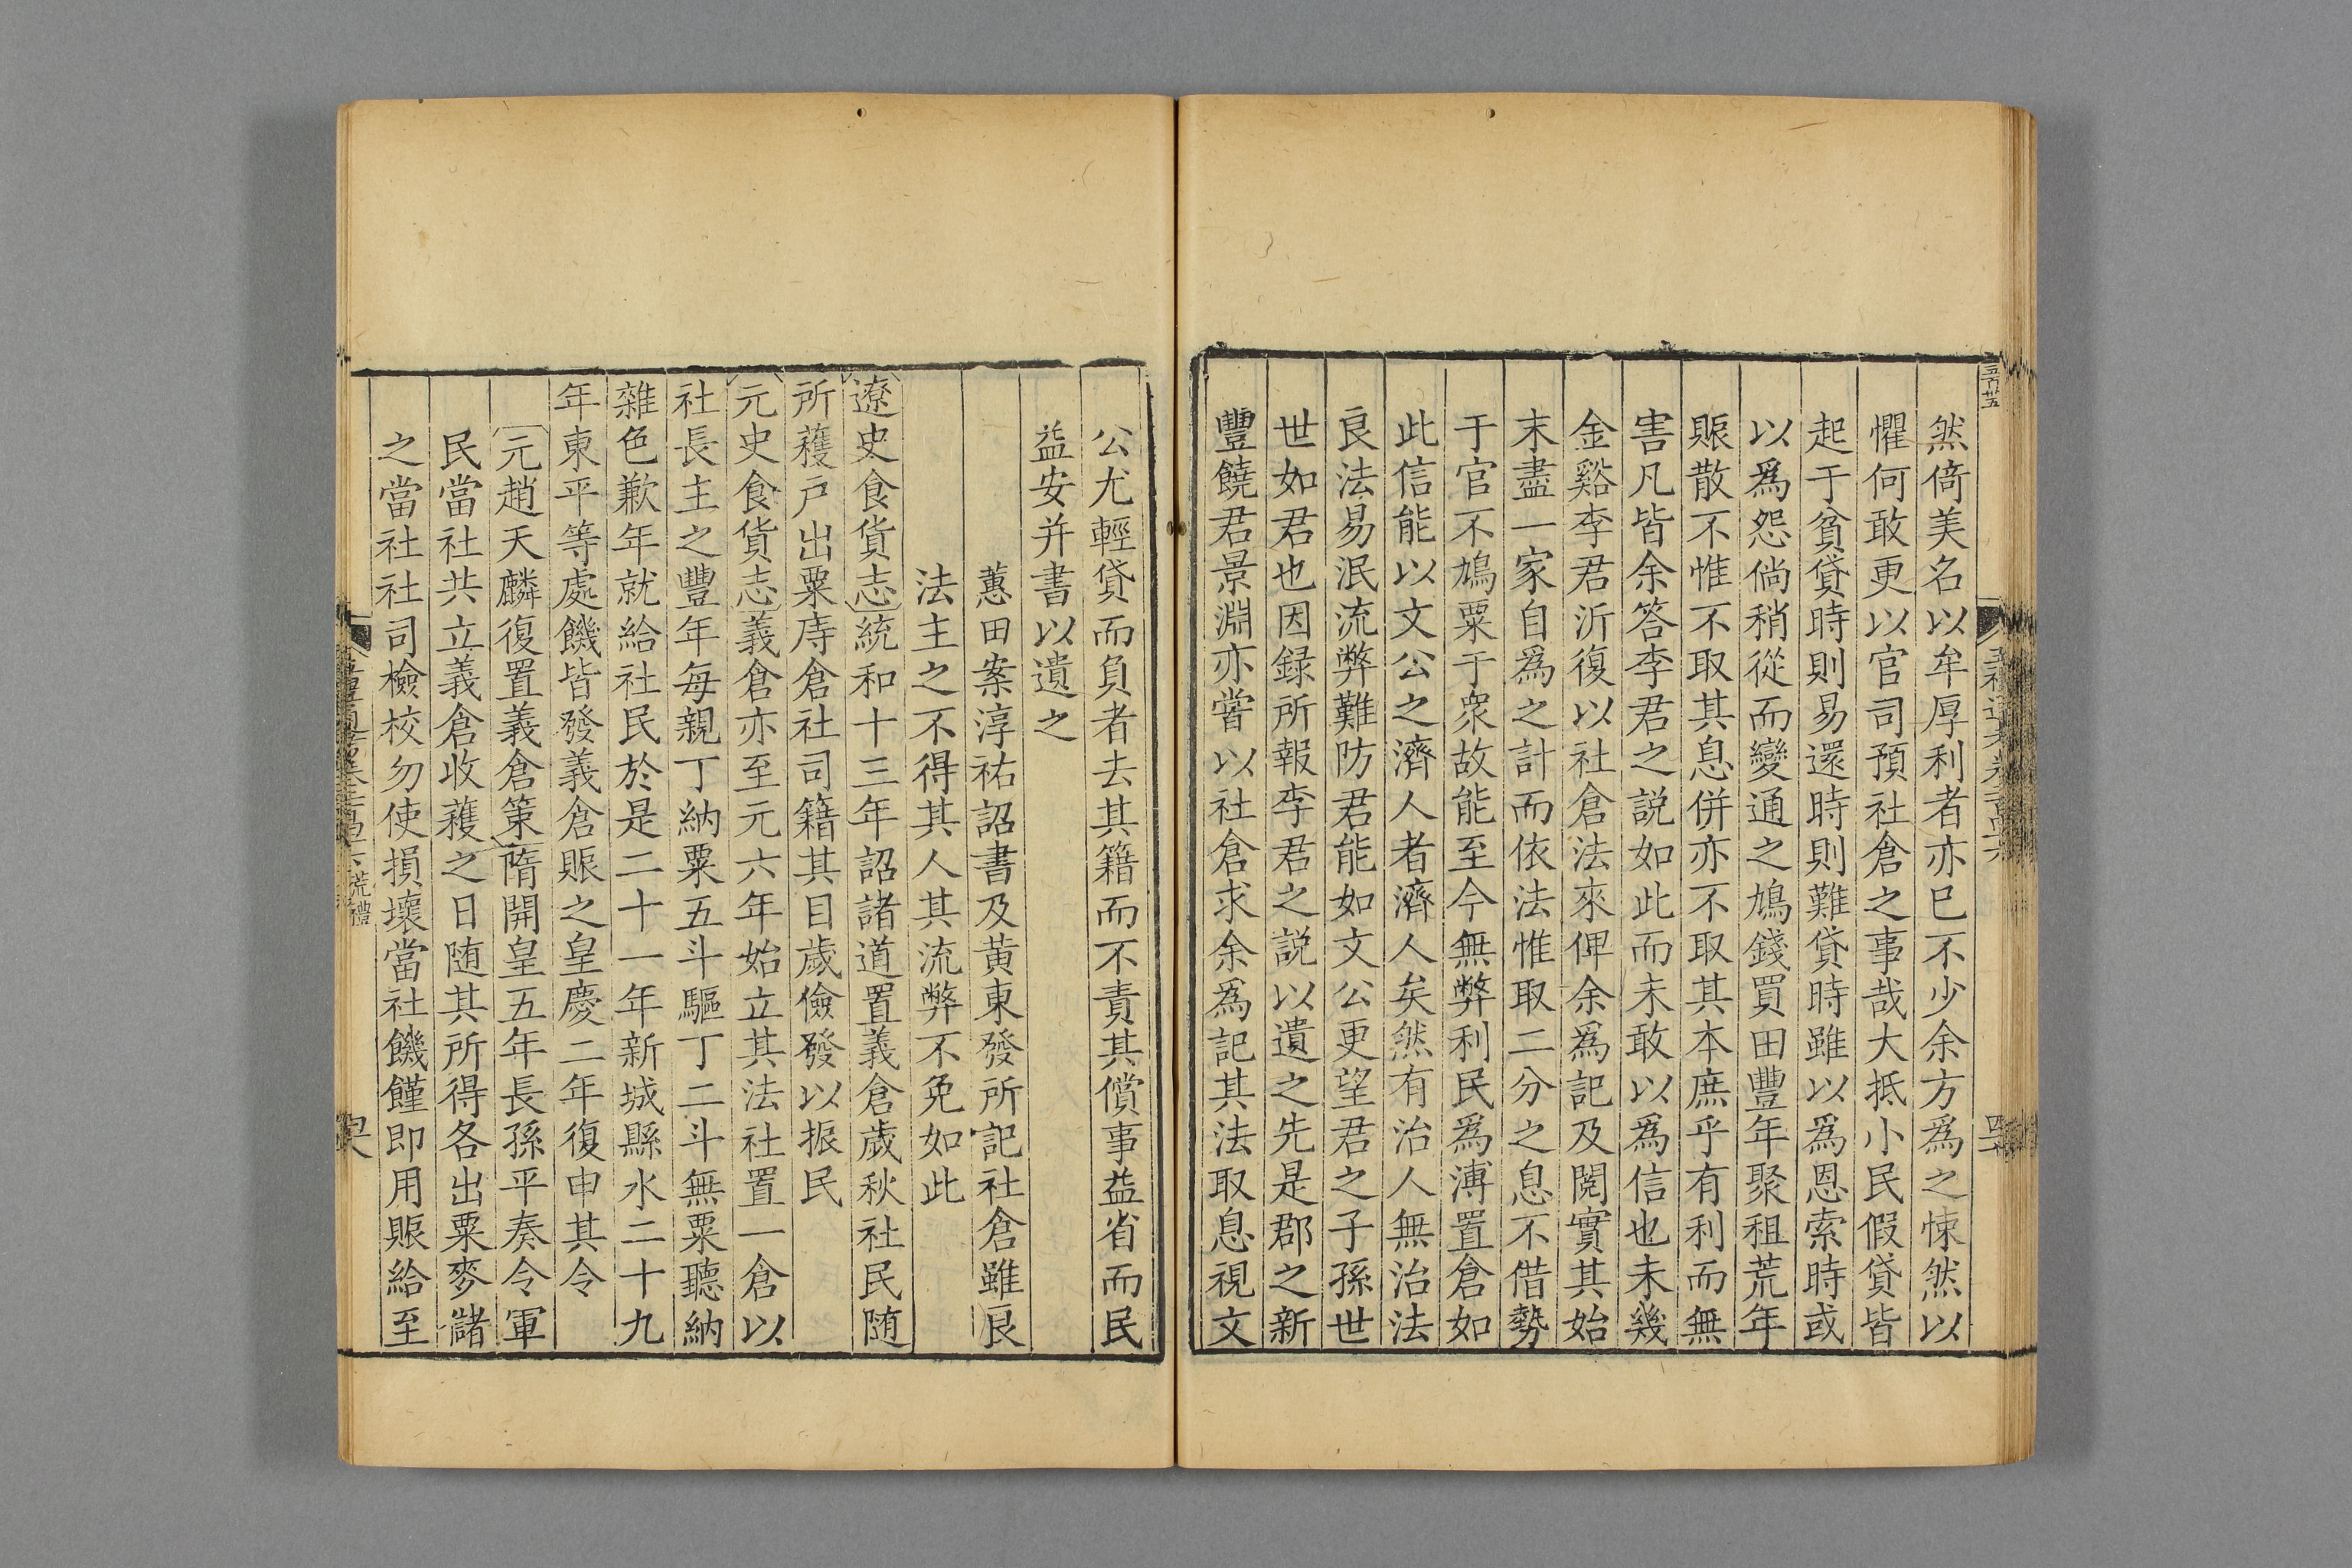 然倚美名以牟厚利者亦已不少余方爲之悚然以
懼何敢更以官司預社倉之事哉大抵小民假貸皆
起于貧貸時則易還時則難貸時雖以爲恩索時或
以爲怨倘稍從而變通之鳩錢買田豐年聚租荒年
賑散不惟不取其息併亦不取其本庶乎有利而無
害凡皆余答李君之説如此而未敢以爲信也未幾
金谿李君沂復以社倉法來俾余爲記及閲實其始
末盡一家自爲之計而依法惟取二分之息不借勢
于官不鳩粟于衆故能至今無弊利民爲溥置倉如
此信能以文公之濟人者濟人矣然有治人無治法
良法易泯流弊難防君能如文公更望君之子孫世
世如君也因録所報李君之説以遺之先是郡之新
豐饒君景淵亦嘗以社倉求余爲記其法取息視文
公尤輕貸而負者去其籍而不責其償事益省而民
益安并書以遺之
蕙田案淳祐詔書及黄東發所記社倉雖良
法主之不得其人其流弊不免如此
遼史食貨志統和十三年詔諸道置義倉歲秋社民随
所穫戸出粟庤倉社司籍其目歲儉發以振民
元史食貨志義倉亦至元六年始立其法社置一倉以
社長主之豐年每親丁納粟五斗驅丁二斗無粟聽納
雜色歉年就給社民於是二十一年新城縣水二十九
年東平等處饑皆發義倉賑之皇慶二年復申其令
元趙天麟復置義倉策隋開皇五年長孫平奏令軍
民當社共立義倉收穫之日随其所得各出粟麥儲
之當社社司檢校勿使損壞當社饑饉即用賑給至
荒禮